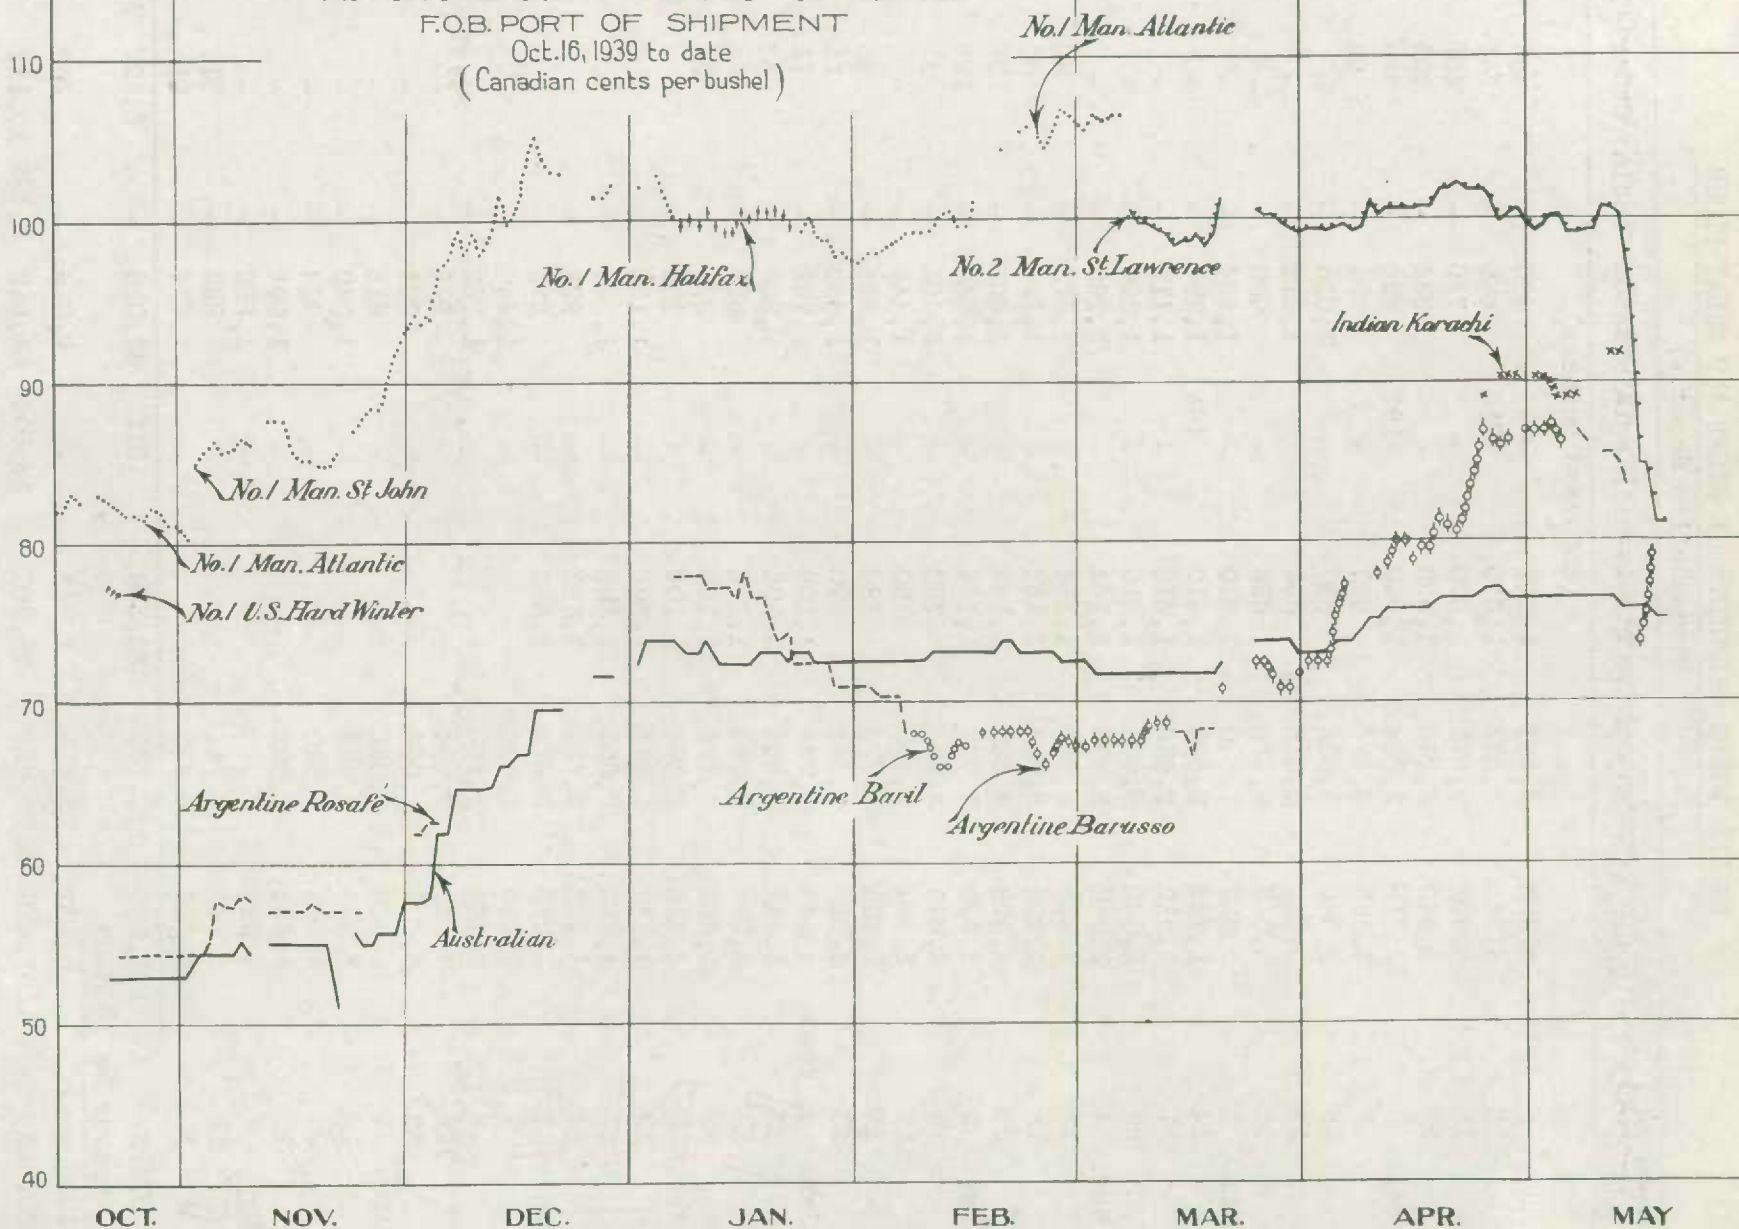 F.O.B. PORT OF SHIPMENT
Oct. 16, 1939 to date
(Canadian cents per bushel)
No. 1 Man. Atlantic
110
100
No. 1 Man. Halifax
No. 2 Man. St. Lawrence
Indian Karachi
90
No. 1 Man. St John
80
No. 1 Man. Atlantic
No. 1 U.S. Hard Winter
70
Argentine Rosafé
Argentine Baril
Argentine Barusso
60
Australian
50
40
OCT. NOV. DEC. JAN. FEB. MAR. APR. MAY